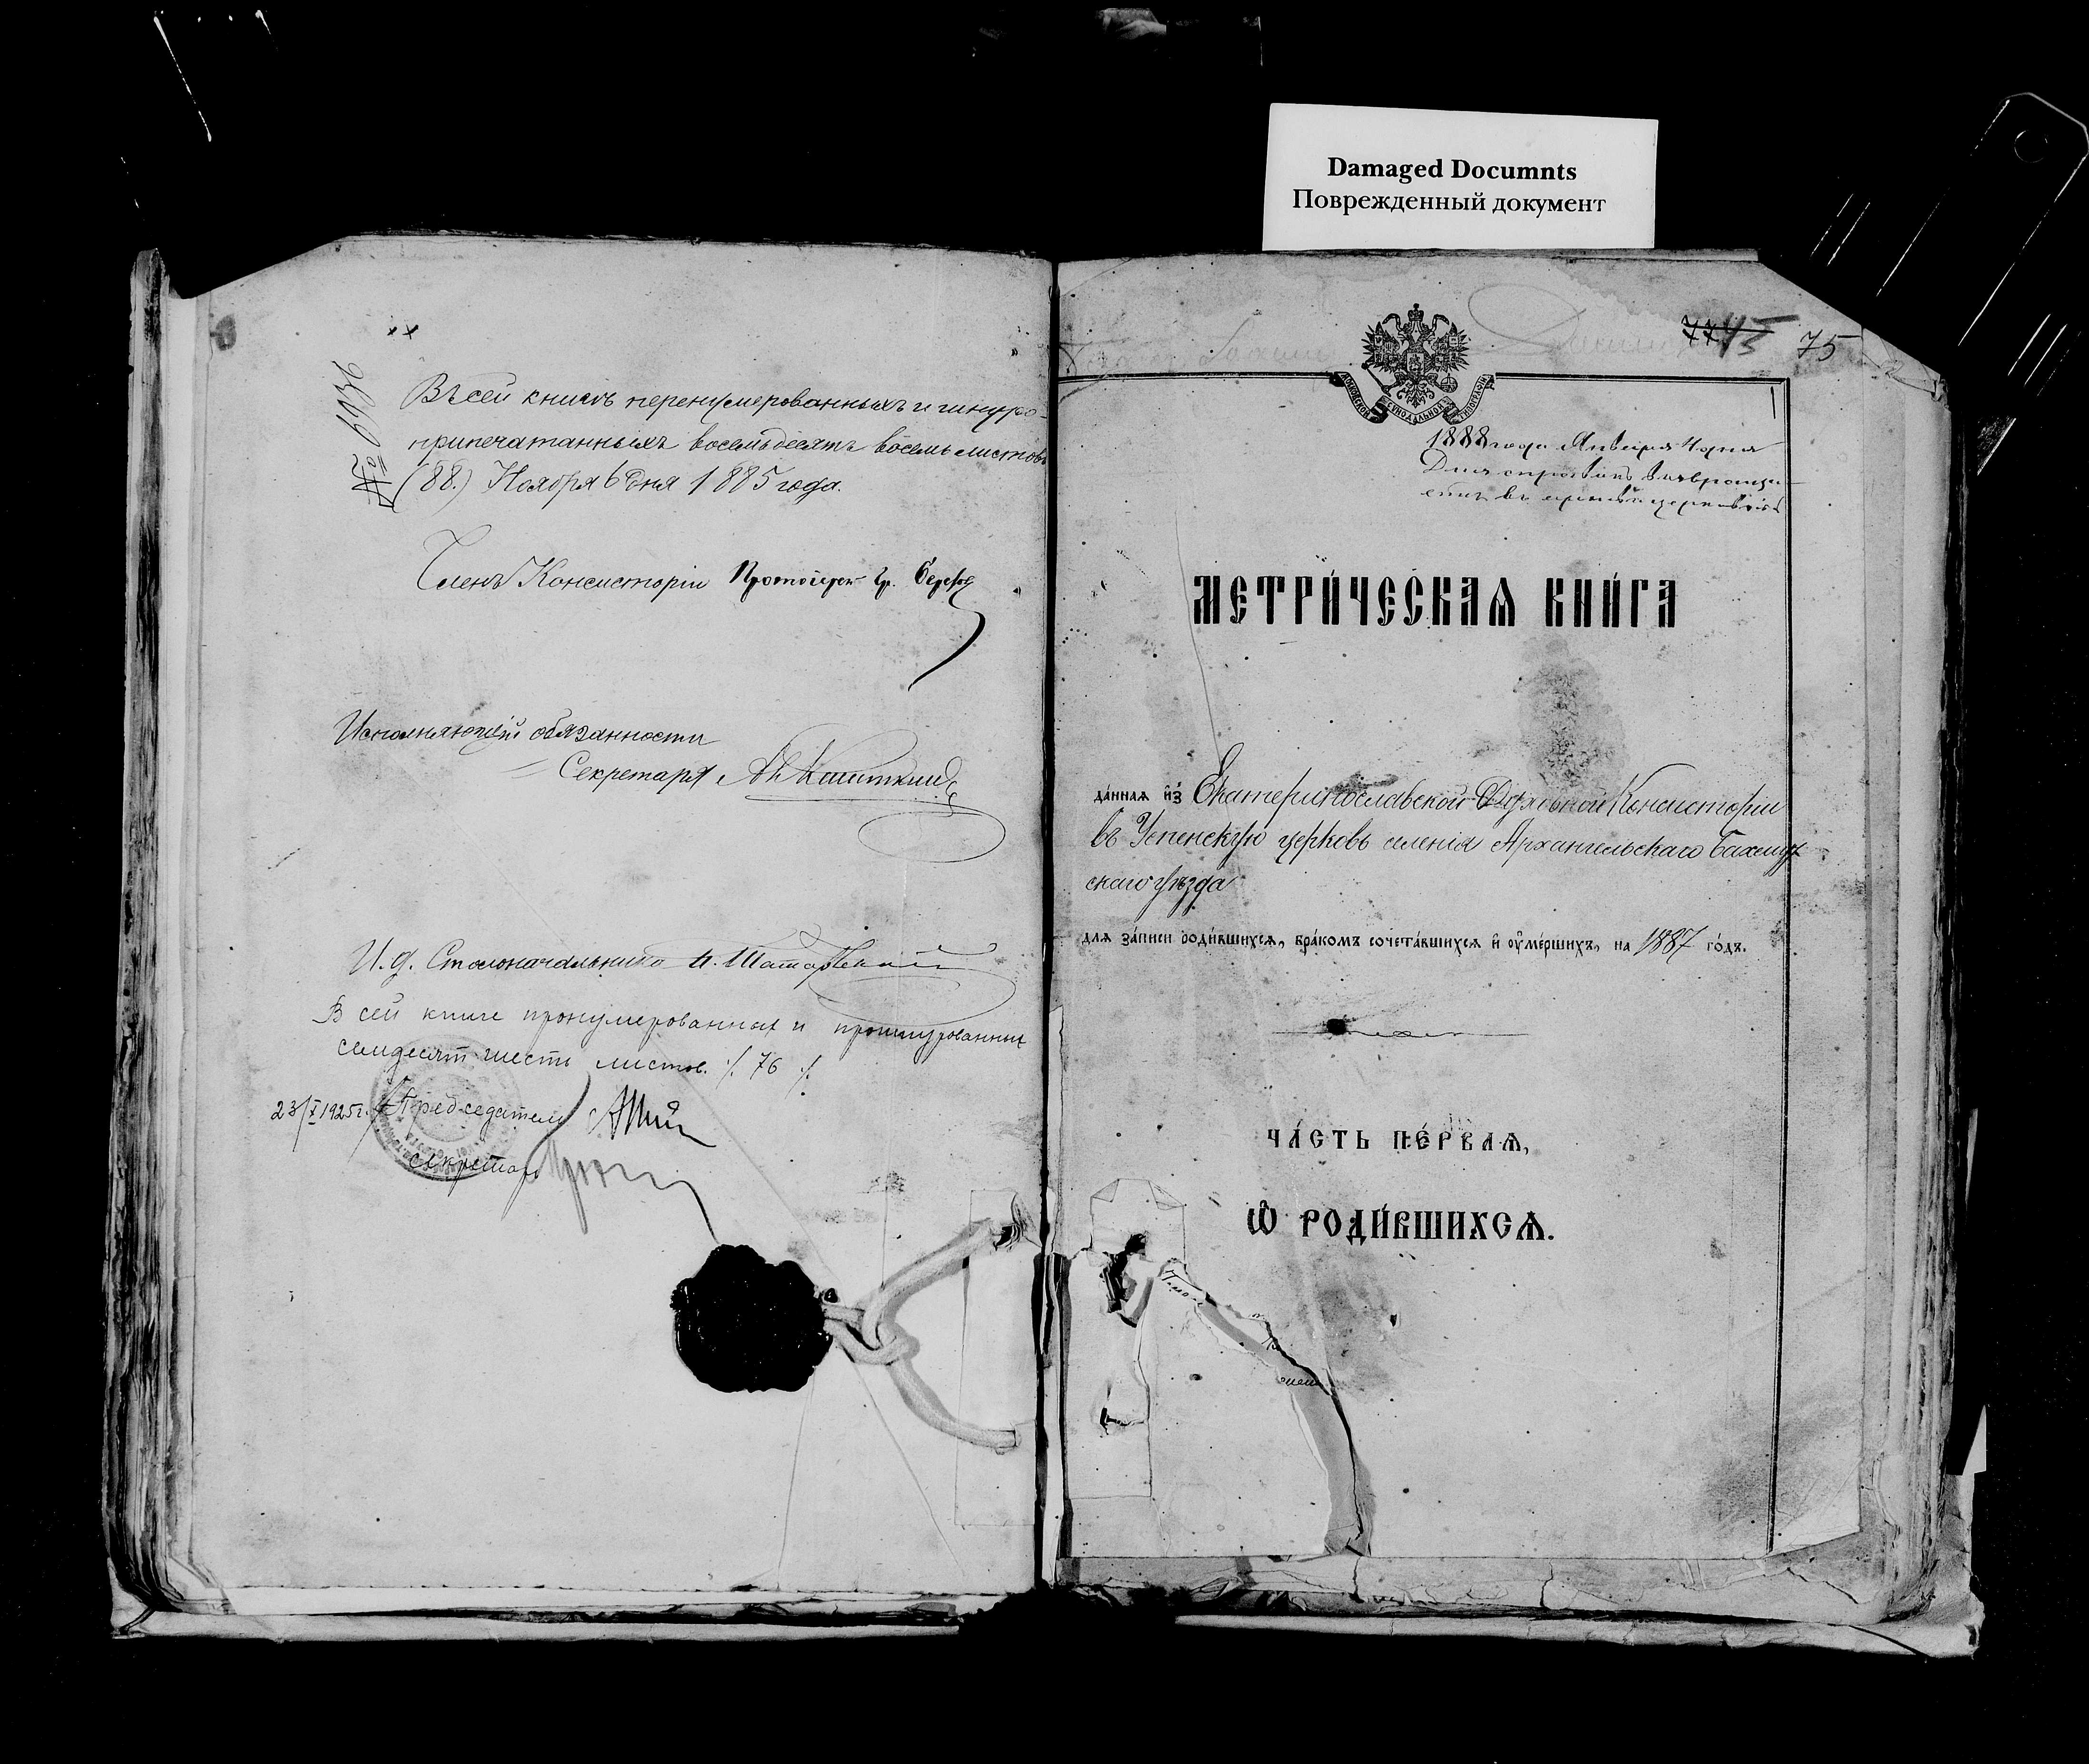 Damaged Documnts
Поврежденный документ
№ 9366
Въ сей книгѣ перенумерованныхъ и шнуро-
припечатанныхъ восемьдесятъ восемь листовъ
(88.) Ноября 6 дня 1885 года.
Членъ Консисторіи Протоіерей Гр.
Исполняющій обязанности
Секретаря
И. д. Столоначальника
В сей книге пронумерованных и прошнурованных
семидесят шесть листов. /. 76 /.
23/X 1925 г. Председатель
секретарь
75
МОСКОВСКОЙ СѴНОДАЛЬНОЙ ТИПОГРАФІИ
1888 года Января 4 дня
МЕТРИ́ЧЕСКАѦ КНИ́ГА
да́нная и҆з̾ Екатеринославской Духовной Консисторіи
въ Успенскую церковь селенія Архангельскаго Бахмут-
скаго уѣзда
для за́писи роди́вшихсѧ, бра́комъ сочета́вшихсѧ и҆ ᲂу҆ме́ршихъ, на 1887 го́дъ.
ЧА́СТЬ ПЕ́РВАѦ,
Ѽ РОДИ́ВШИХСѦ.